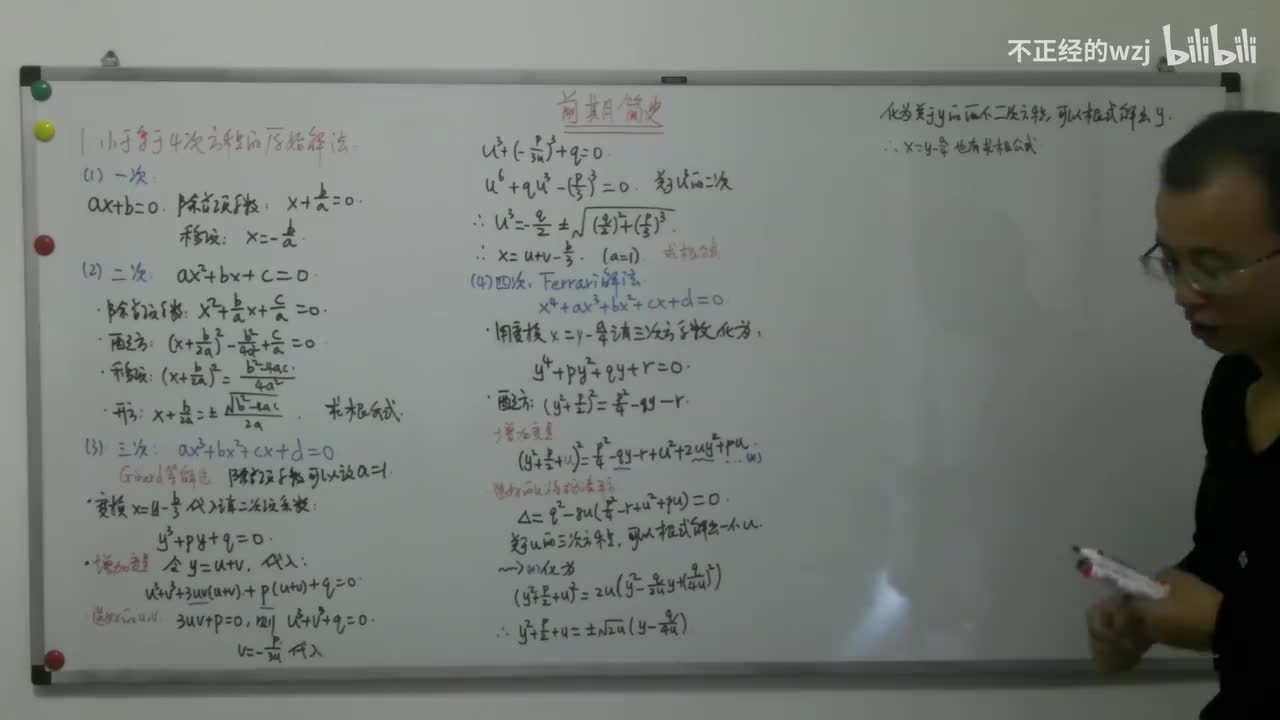 不正经的wzj bilibili
前期简史
1. 小于等于4次方程的原始解法.
(1) 一次:
ax+b=0. 除首项系数: x+b/a=0.
移项: x=-b/a.
(2) 二次: ax²+bx+c=0.
·除首项系数: x²+b/a x+c/a=0.
·配方: (x+b/2a)²-b²/4a²+c/a=0
·移项: (x+b/2a)²=(b²-4ac)/4a²
·开方: x+b/2a=±√(b²-4ac)/2a. 求根公式.
(3) 三次: ax³+bx²+cx+d=0
除首项系数可以设a=1.
·变换x=y-b/3代入消二次项系数:
y³+py+q=0.
·增加变量 令y=u+v, 代入:
u³+v³+3uv(u+v)+p(u+v)+q=0.
选好的u,v 3uv+p=0, 则 u³+v³+q=0.
v=-p/3u 代入
u³+(-p/3u)³+q=0.
u⁶+qu³-(p/3)³=0. 关于u³的二次
∴ u³=-q/2±√((q/2)²+(p/3)³).
∴ x=u+v-b/3. (a=1) 求根公式
(4) 四次: Ferrari解法
x⁴+ax³+bx²+cx+d=0
·用变换x=y-a/4消三次方系数化为:
y⁴+py²+qy+r=0.
·配方: (y²+p/2)²=p²/4-qy-r.
增加变量
(y²+p/2+u)²=p²/4-qy-r+u²+2uy²+pu. …(*)
Δ=q²-8u(p²/4-r+u²+pu)=0.
关于u的三次方程, 可以根式解出一个u.
⇝(*)化为
(y²+p/2+u)²=2u(y²-q/2u y+(q/4u)²)
∴ y²+p/2+u=±√2u(y-q/4u)
化为关于y的两个二次方程, 可以根式解出y.
∴ x=y-a/4 也有求根公式.